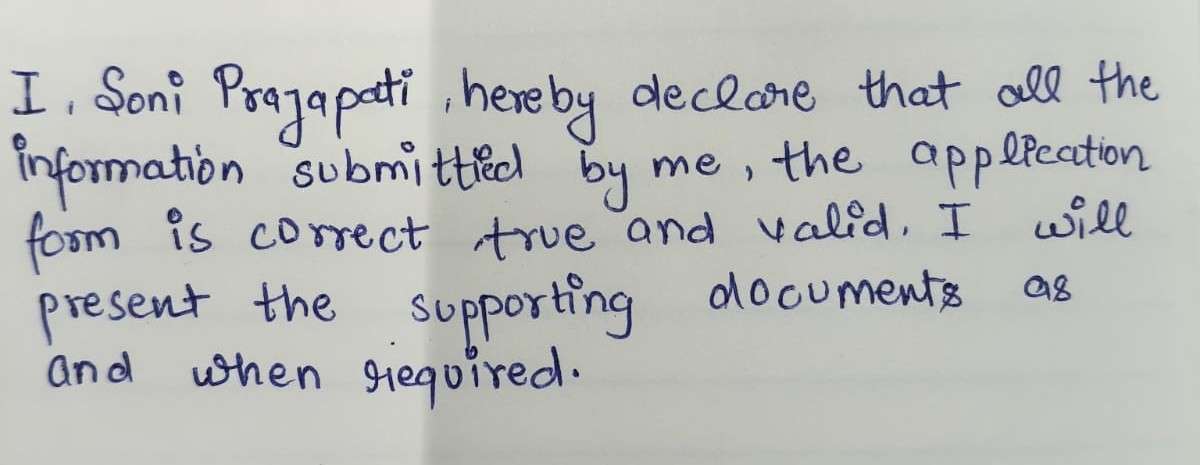 I, Soni Prajapati, hereby declare that all the
information submittied by me, the application
form is correct true and valid. I will
present the supporting documents as
and when required.